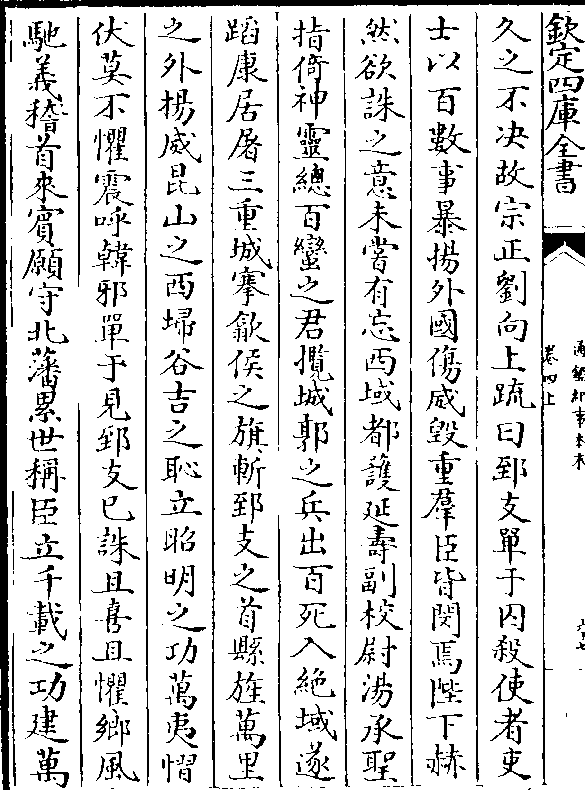 欽定四庫全書
通鑑紀事本末
卷四上
久之不決故宗正劉向上疏曰郅支單于囚殺使者吏
士以百數事暴揚外國傷威毀重羣臣皆閔焉陛下赫
然欲誅之意未嘗有忘西域都護延壽副校尉湯承聖
指倚神靈總百蠻之君攬城郭之兵出百死入絶域遂
蹈康居屠三重城搴歙侯之旗斬郅支之首縣旌萬里
之外揚威昆山之西埽谷吉之恥立昭明之功萬夷慴
伏莫不懼震呼韓邪單于見郅支已誅且喜且懼鄉風
馳義稽首來賓願守北藩累世稱臣立千載之功建萬